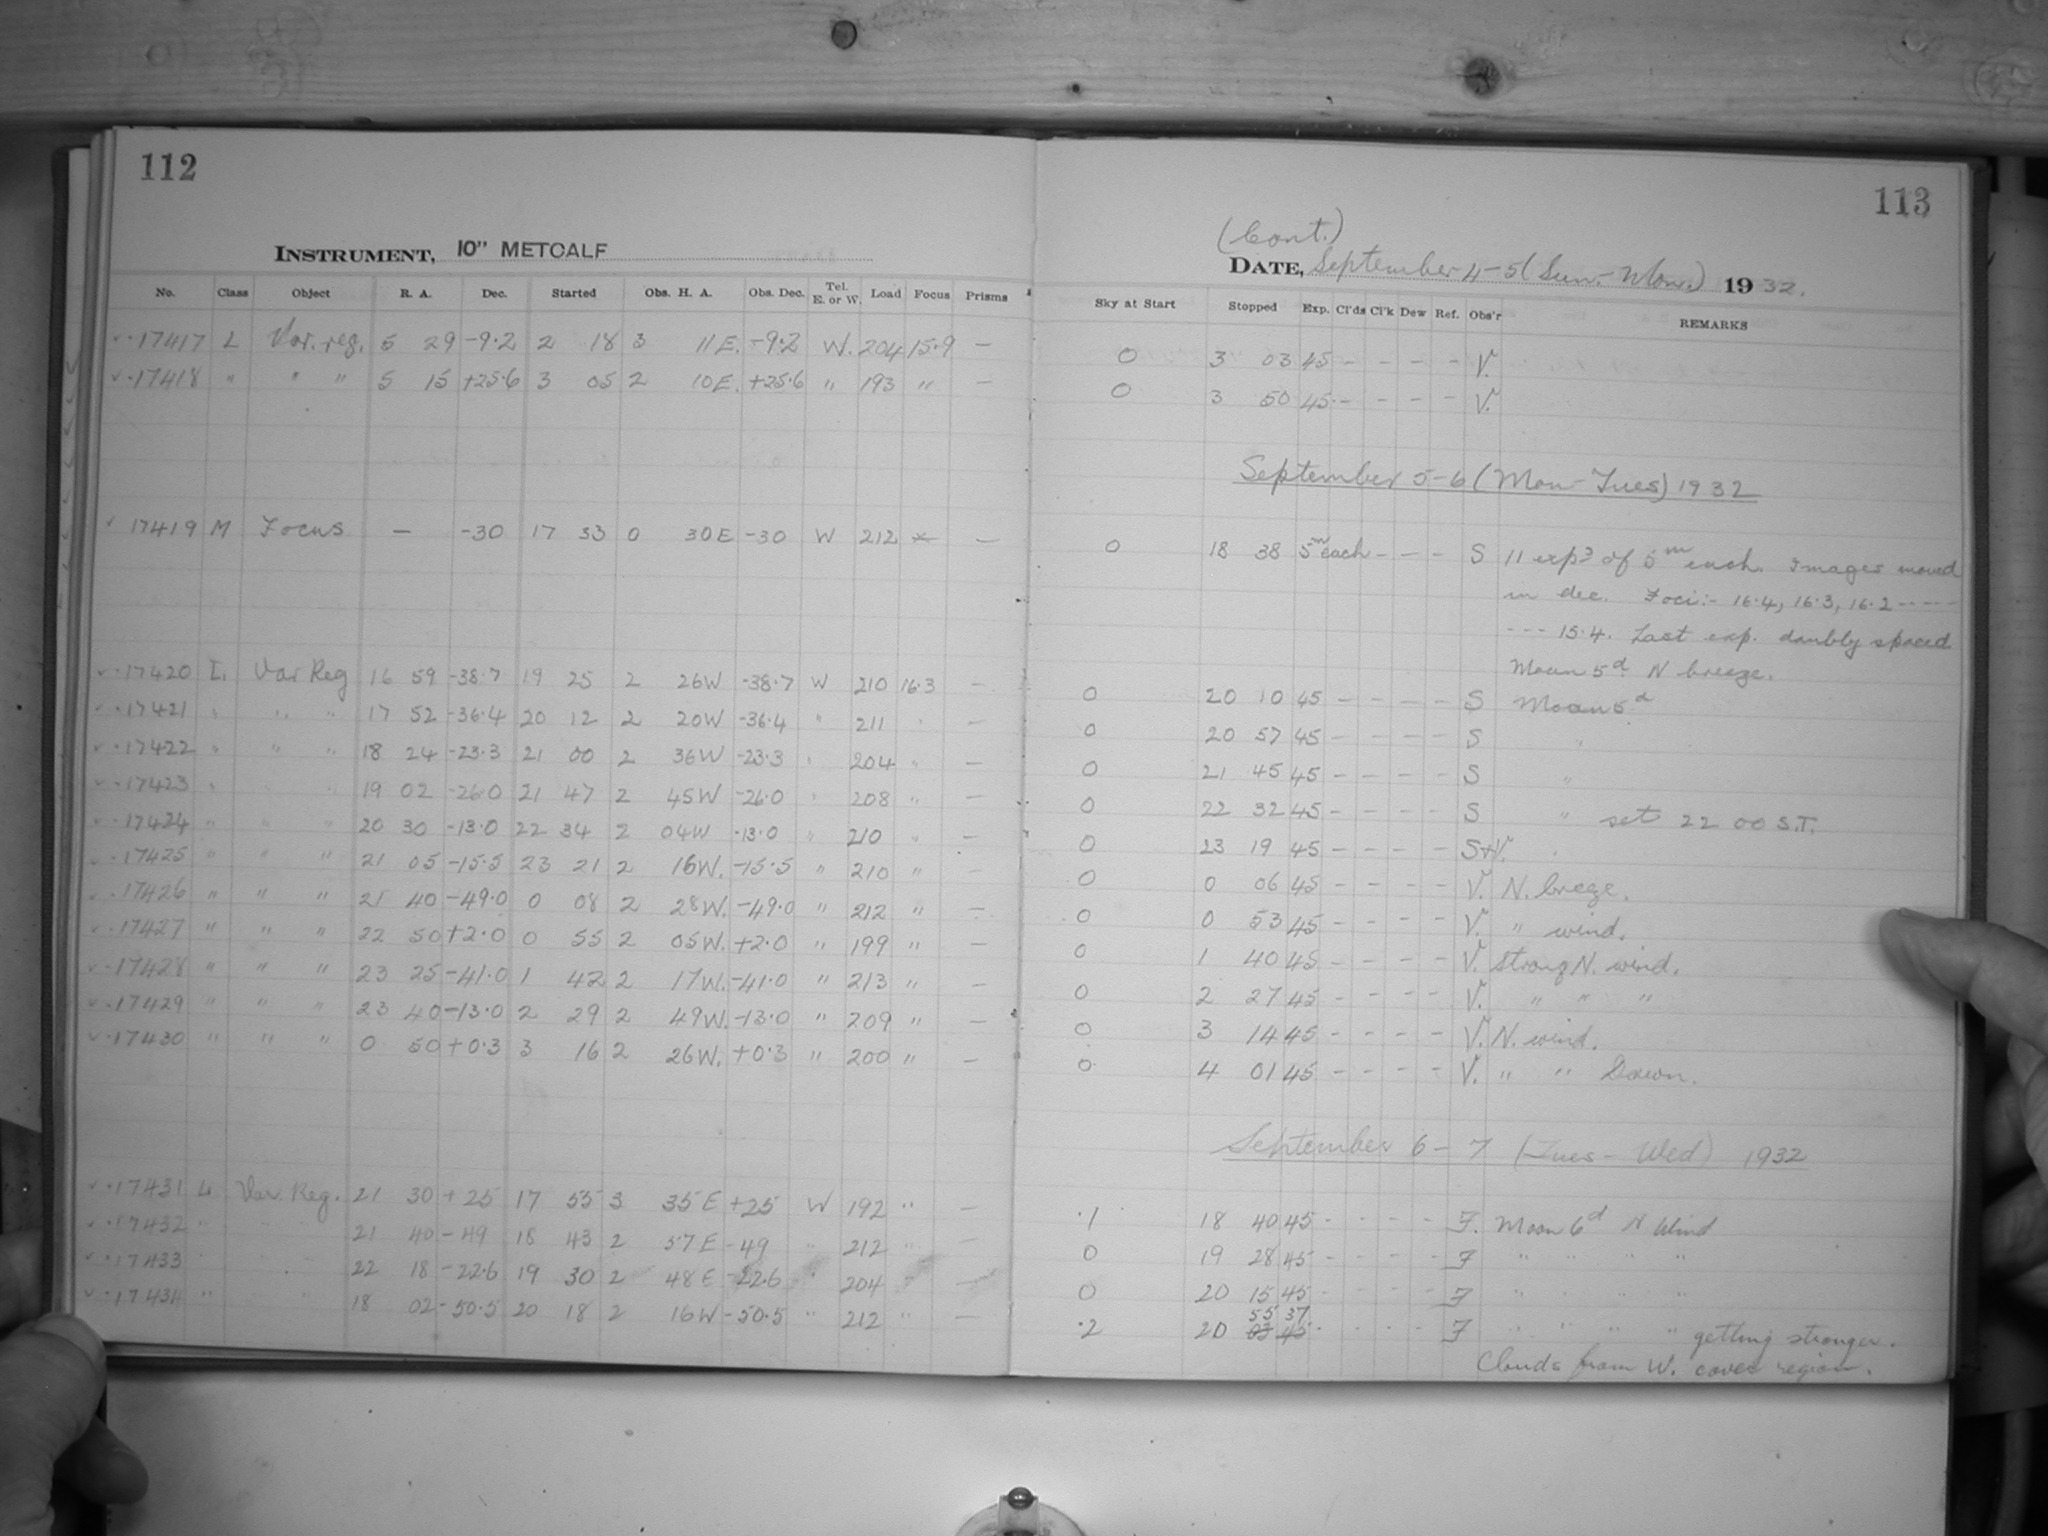 112
INSTRUMENT, 10" METCALF
No. Class Object R. A. Dec. Started Obs. H. A. Obs. Dec. Tel. E. or W. Load Focus Prisms
17417 L Var. reg. 5 29 -9.2 2 18 3 11E. -9.2 W. 204 15.9 —
17418 " " " 5 15 +25.6 3 05 2 10E. +25.6 " 193 " —
17419 M Focus — -30 17 33 0 30E -30 W 212 —
17420 L. Var Reg 16 59 -38.7 19 25 2 26W -38.7 W 210 16.3 —
17421 " " " 17 52 -36.4 20 12 2 20W -36.4 " 211 " —
17422 " " " 18 24 -23.3 21 00 2 36W -23.3 " 204 " —
17423 " " " 19 02 -26.0 21 47 2 45W -26.0 " 208 " —
17424 " " " 20 30 -13.0 22 34 2 04W -13.0 " 210 " —
17425 " " " 21 05 -15.5 23 21 2 16W. -15.5 " 210 " —
17426 " " " 21 40 -49.0 0 08 2 28W. -49.0 " 212 " —
17427 " " " 22 50 +2.0 0 55 2 05W. +2.0 " 199 " —
17428 " " " 23 25 -41.0 1 42 2 17W. -41.0 " 213 " —
17429 " " " 23 40 -13.0 2 29 2 49W. -13.0 " 209 " —
17430 " " " 0 50 +0.3 3 16 2 26W. +0.3 " 200 " —
17431 L Var. Reg. 21 30 +25 17 55 3 35E +25 W 192 " —
17432 " " " 21 40 -49 18 43 2 57E -49 " 212 " —
17433 " " " 22 18 -22.6 19 30 2 48E -22.6 " 204 " —
17434 " " " 18 02 -50.5 20 18 2 16W -50.5 " 212 " —
113
(Cont.)
DATE, September 4-5 (Sun.-Mon.) 1932.
Sky at Start Stopped Exp. Cl'ds Cl'k Dew Ref. Obs'r REMARKS
0 3 03 45 - - - - V.
0 3 50 45 - - - - V.
September 5-6 (Mon-Tues) 1932
0 18 38 5m each - - - S 11 exps of 5m each. Images moved
in dec. Foci:- 16.4, 16.3, 16.2 -----
--- 15.4. Last exp. doubly spaced
Moon 5d N breeze.
0 20 10 45 - - - - S Moon 5d
0 20 57 45 - - - - S "
0 21 45 45 - - - - S "
0 22 32 45 - - - - S " set 22 00 S.T.
0 23 19 45 - - - - S+V.
0 0 06 45 - - - - V. N. breeze.
0 0 53 45 - - - - V. " wind.
0 1 40 45 - - - - V. Strong N. wind.
0 2 27 45 - - - - V. " " "
0 3 14 45 - - - - V. N. wind.
0 4 01 45 - - - - V. " " Dawn.
September 6-7 (Tues-Wed) 1932
.1 18 40 45 - - - - F. Moon 6d N Wind
0 19 28 45 - - - - F " " " "
0 20 15 45 - - - - F " " " "
55 37
.2 20 03 45 - - - - F " " " " getting stronger.
Clouds from W. cover region.